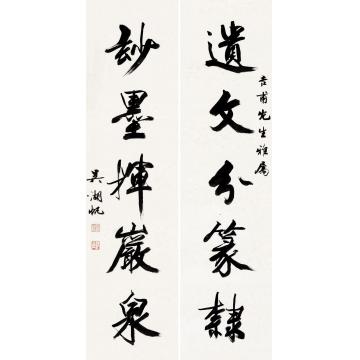 遺文分篆隸
吉甫先生雅屬
妙墨揮巖泉
吳湖帆